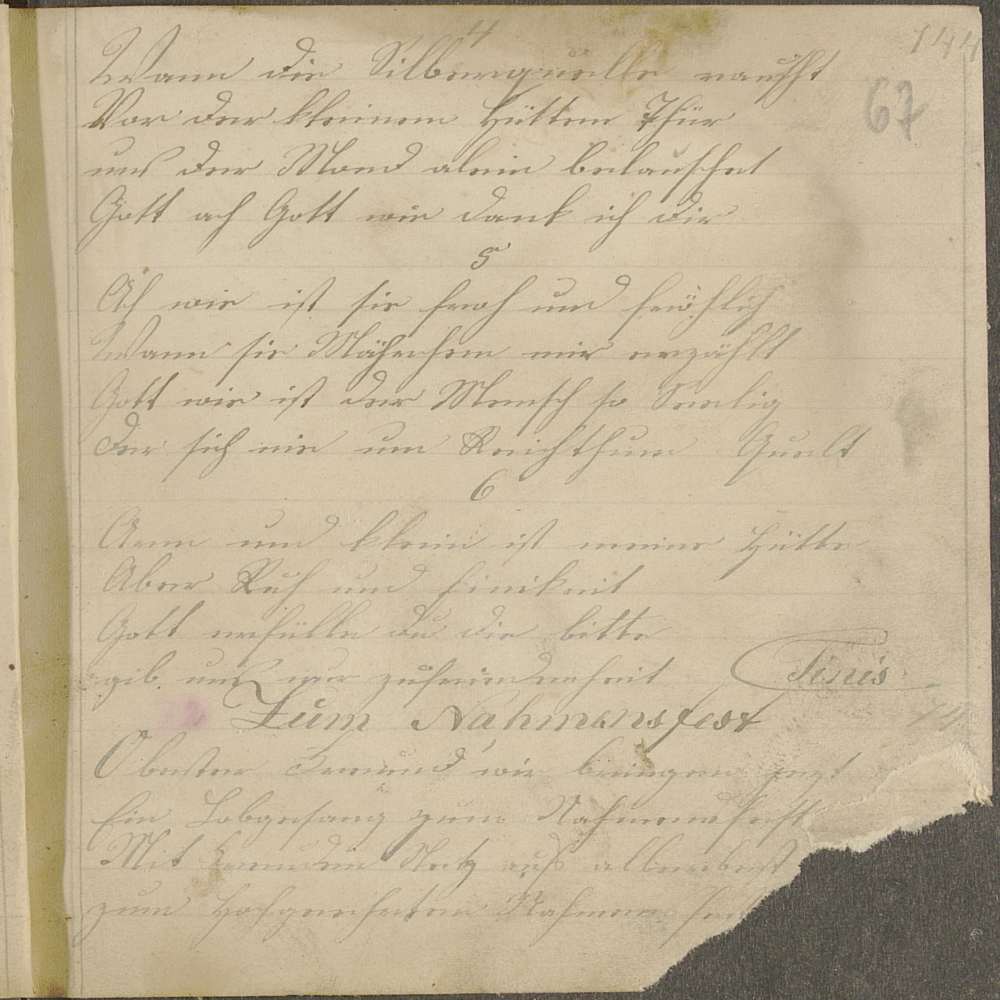 4
144
Wann die Silberquelle rauscht
67
Vor der kleinen Hütten Thür
uns der Mond alein belauschet
Gott ach Gott wie dank ich dir
5
Ach wie ist sie froh und fröhlich
Wann sie Mährchen mir erzählt
Gott wie ist der Mensch so Seelig
der sich nie um Reichthum Quelt
6
Arm und klein ist meine Hütte
Aber Ruh und Einikeit
Gott erfülle du die bitte
gib uns nur zufriedenheit Finis
Zum Nahmensfest
O bester Freund wir bringen jezt
Ein Lobgesang zum Nahmensfest
Mit auf allerbest
zum Nahmen